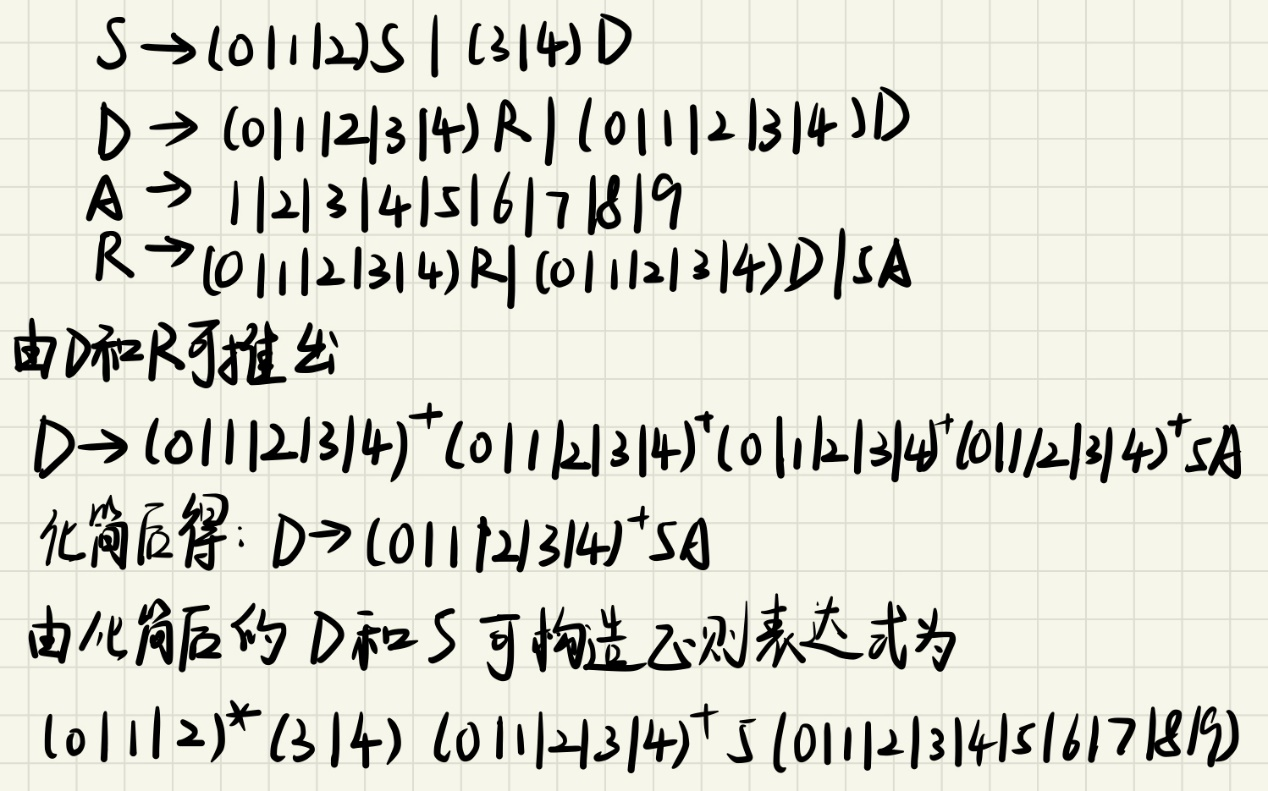 S→(0|1|2)S | (3|4)D
D → (0|1|2|3|4)R | (0|1|2|3|4)D
A → 1|2|3|4|5|6|7|8|9
R →(0|1|2|3|4)R| (0|1|2|3|4)D|5A
由D和R可推出
D→(0|1|2|3|4)⁺(0|1|2|3|4)⁺(0|1|2|3|4)⁺(0|1|2|3|4)⁺5A
化简后得: D→(0|1|2|3|4)⁺5A
由化简后的 D和S 可构造正则表达式为
(0|1|2)*(3|4) (0|1|2|3|4)⁺5(0|1|2|3|4|5|6|7|8|9)